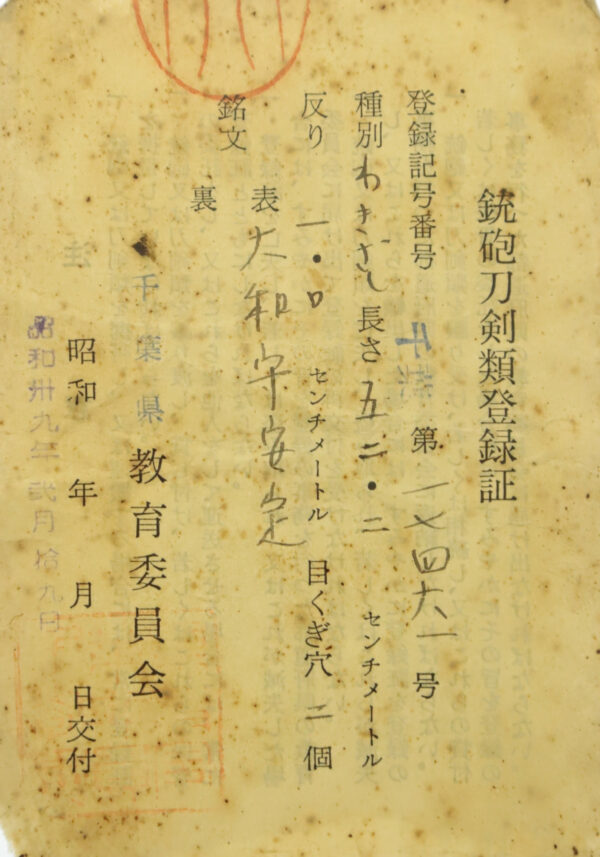 銃砲刀剣類登録証
登録記号番号 千葉 第一七四六一号
種別わきざし長さ五二・二センチメートル
反り一・〇センチメートル目くぎ穴二個
銘文 表大和守安定
裏
千葉県教育委員会
昭和 年 月 日交付
昭和卅九年弐月拾九日